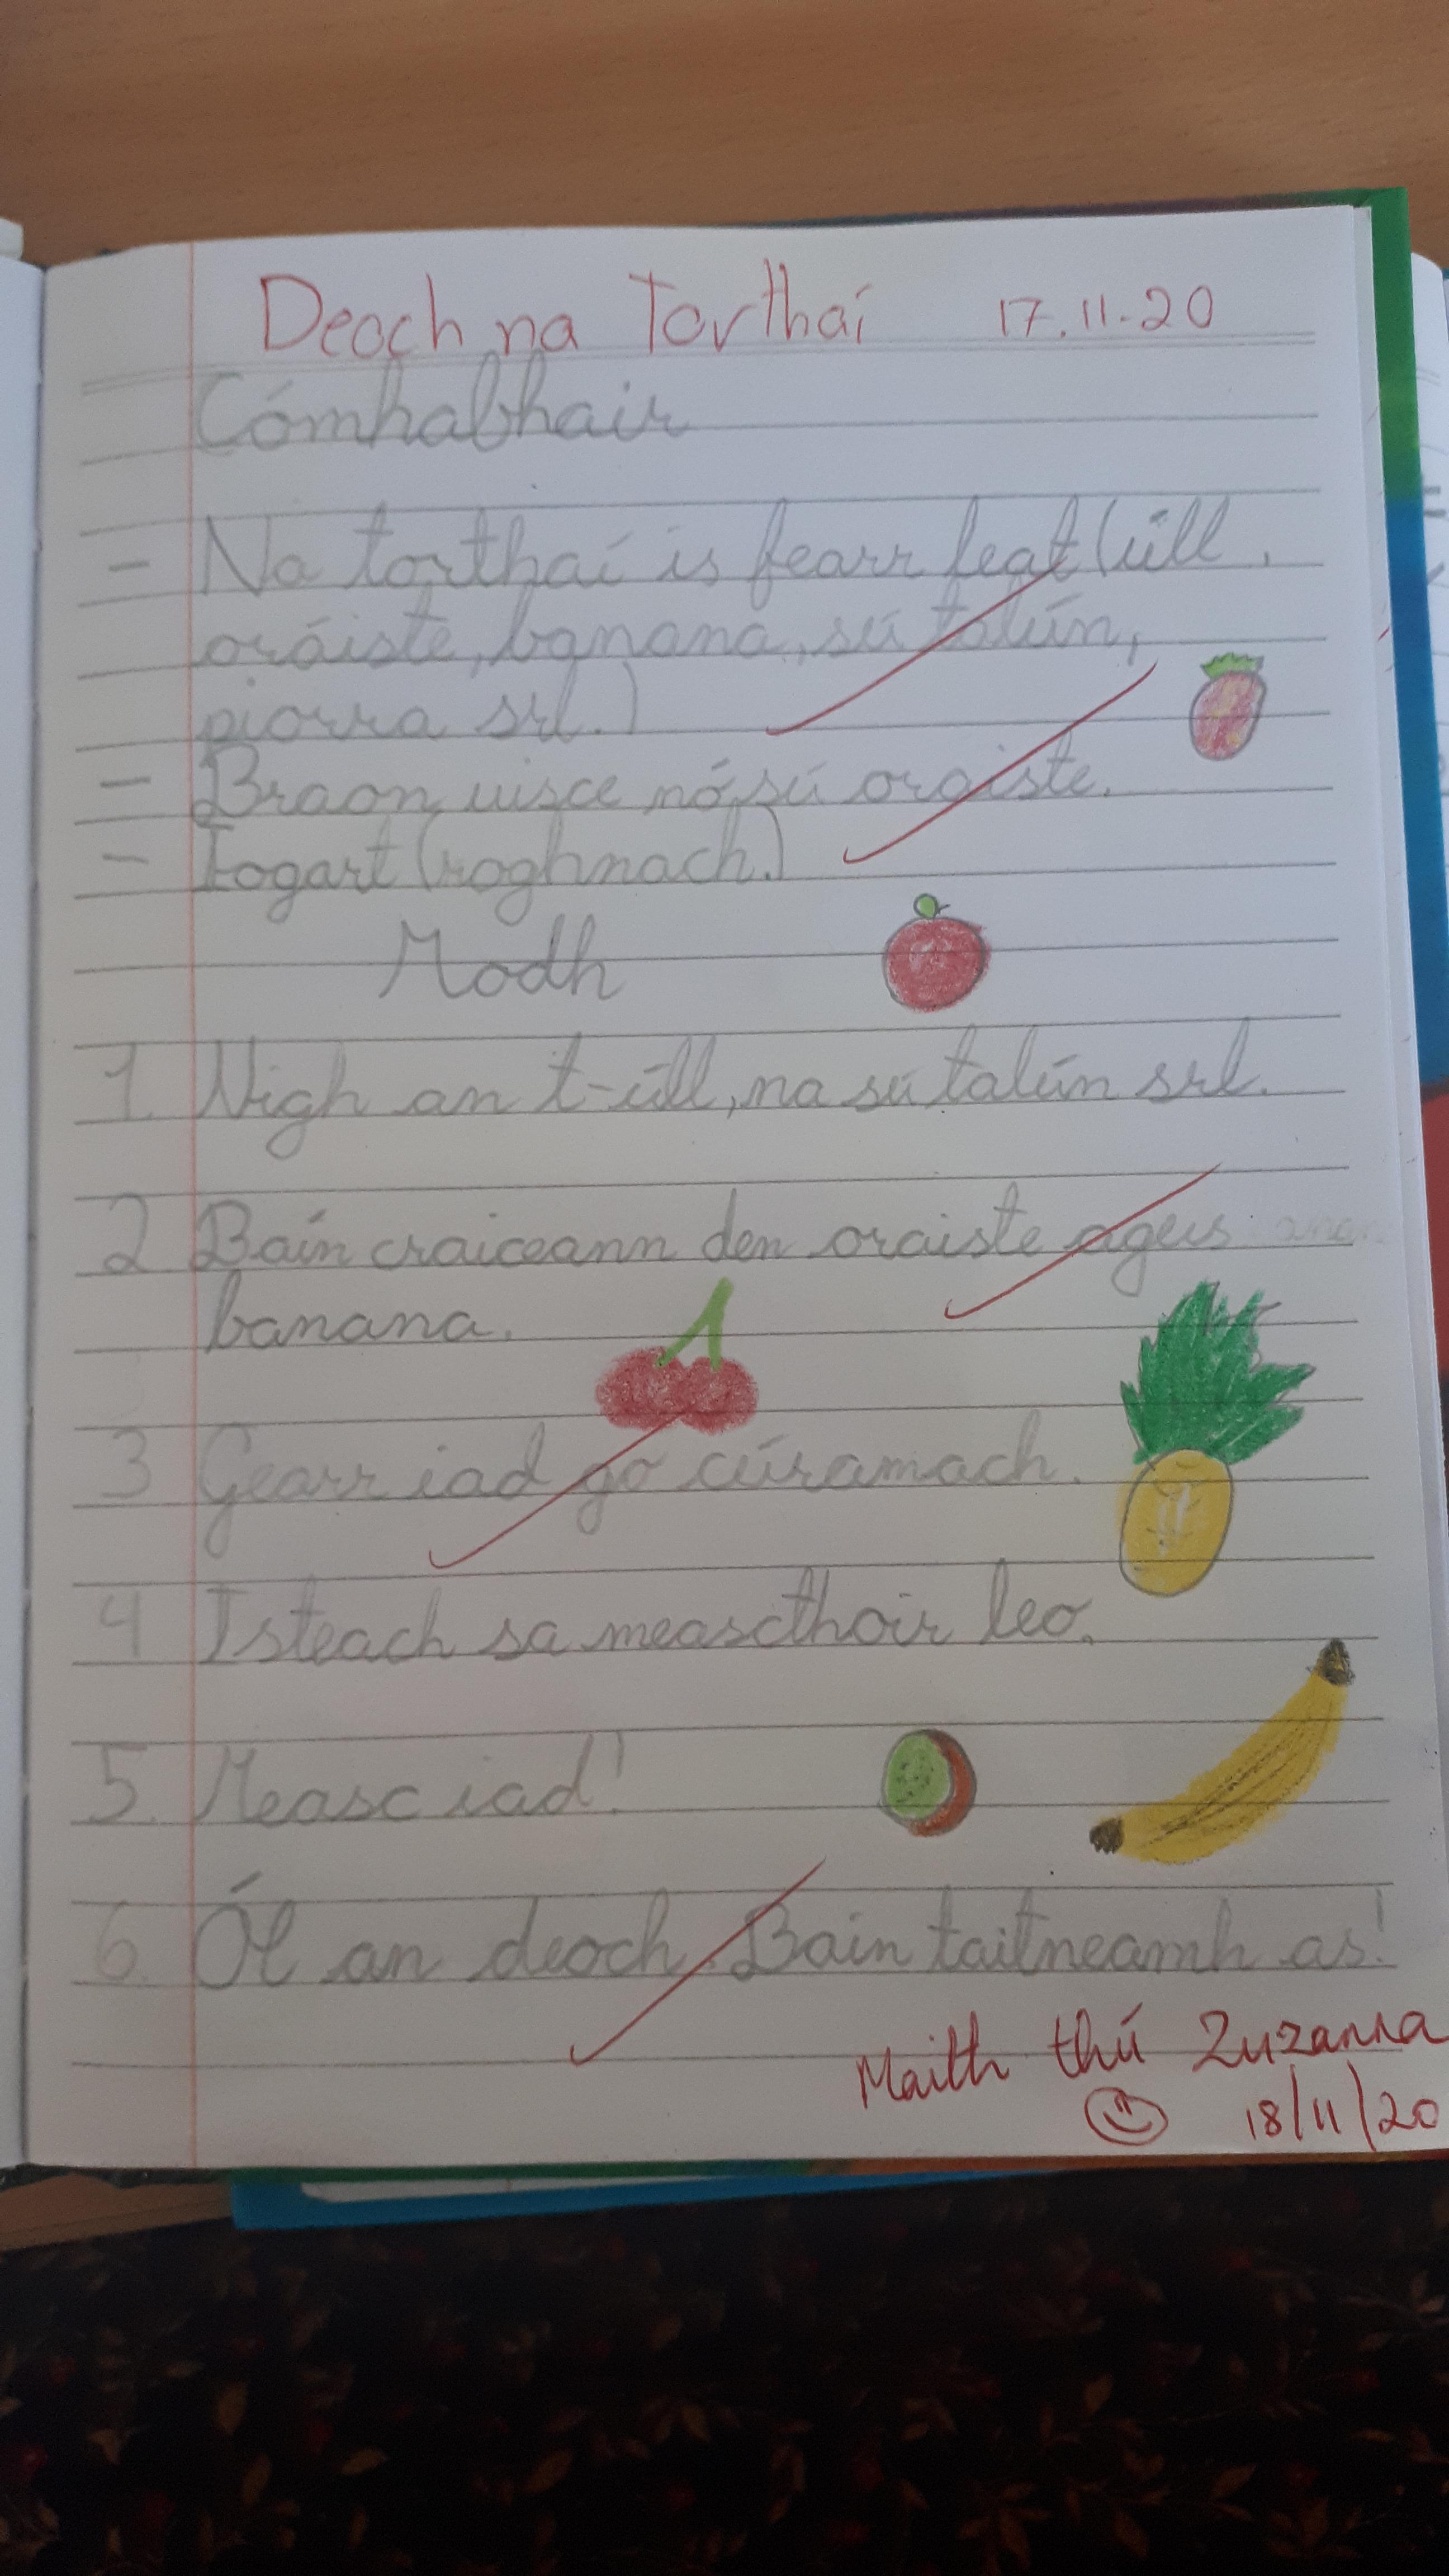 Deoch na Torthaí 17.11.20
Cómhabhair
- Na torthaí is fearr leat (úll,
oráiste, banana, sú talún,
piorra srl.)
- Braon uisce nó sú oraiste.
- Iogart (roghnach.)
Modh
1. Nigh an t-úll, na sú talún srl.
2 Baín craiceann den oraiste agus
banana.
3 Gearr iad go cúramach.
4 Isteach sa meascthoir leo.
5. Measc iad!
6. Ól an deoch. Bain taitneamh as!
Maith thú Zuzanna
18/11/20